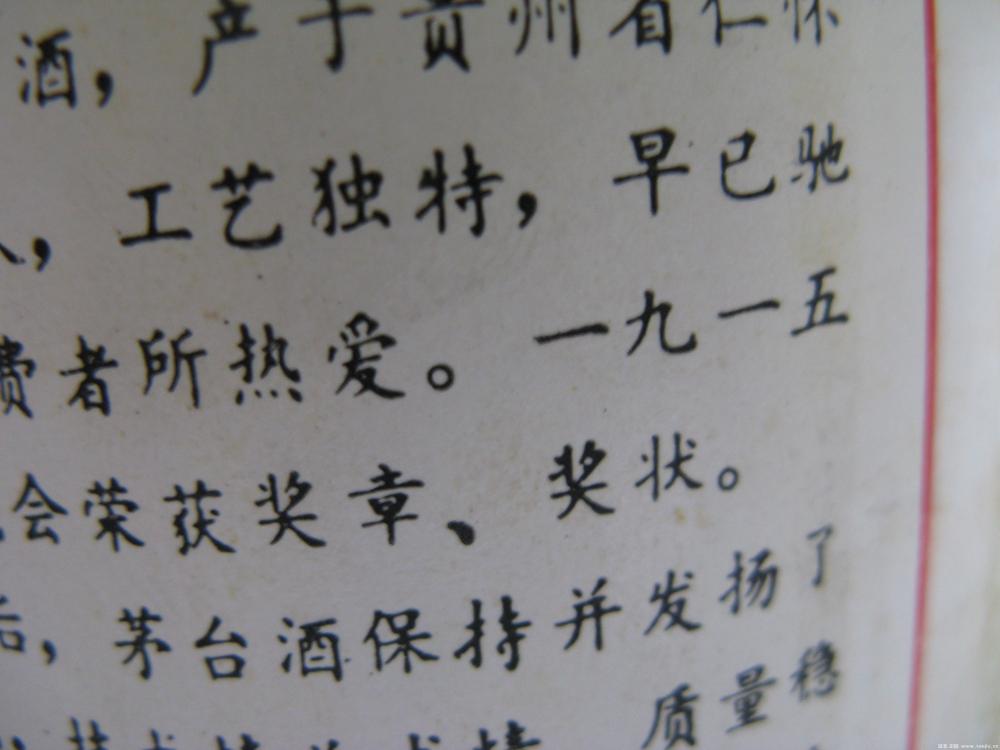 酒，产于贵州省仁怀
，工艺独特，早已驰
费者所热爱。一九一五
会荣获奖章、奖状。
后，茅台酒保持并发扬了
质量稳